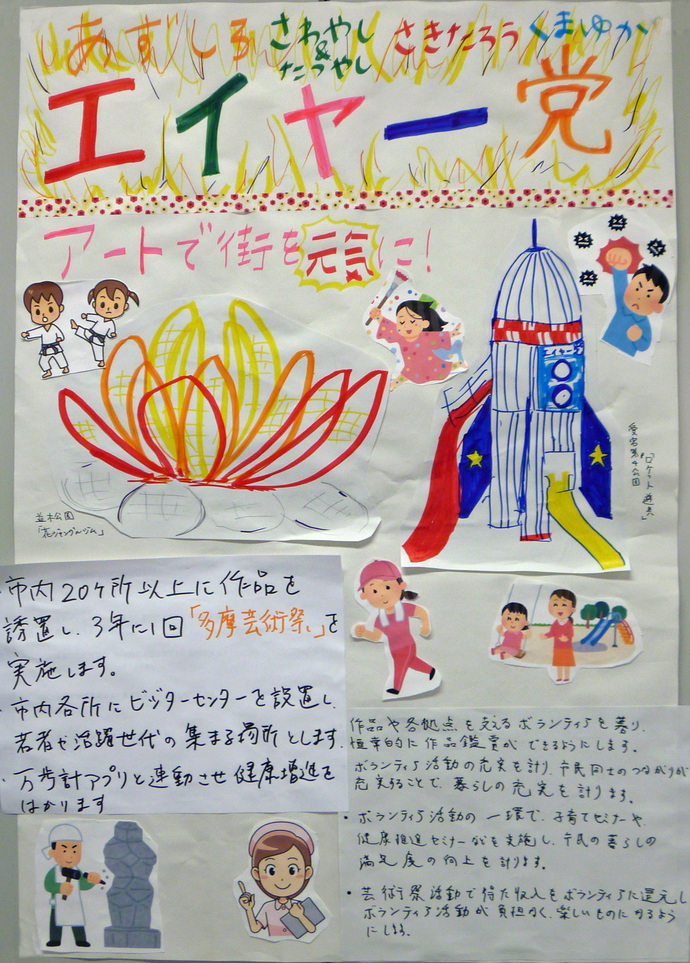 あすじろ さわやし & たつやし さきたろう くまゆか
エイヤー党
アートで街を元気に!
エイヤー
愛宕第4公園
「ロケット遊具」
並木公園
「花ジャングルジム」
・市内20ヶ所以上に作品を
誘置し、3年に1回「多摩芸術祭」を
実施します。
・市内各所にビジターセンターを設置し、
若者や活躍世代の集まる場所とします
・万歩計アプリと連動させ健康増進を
はかります
作品や各拠点を支えるボランティアを募り、
恒常的に作品鑑賞ができるようにします。
ボランティア活動の充実を計り、市民同士のつながりが
充実することで、暮らしの充実を計ります。
・ボランティア活動の一環で、子育てセミナーや、
健康推進セミナーなどを実施し、市民の暮らしの
満足度の向上を計ります。
・芸術祭活動で得た収入をボランティアに還元し
ボランティア活動が負担なく、楽しいものになるよう
にします。